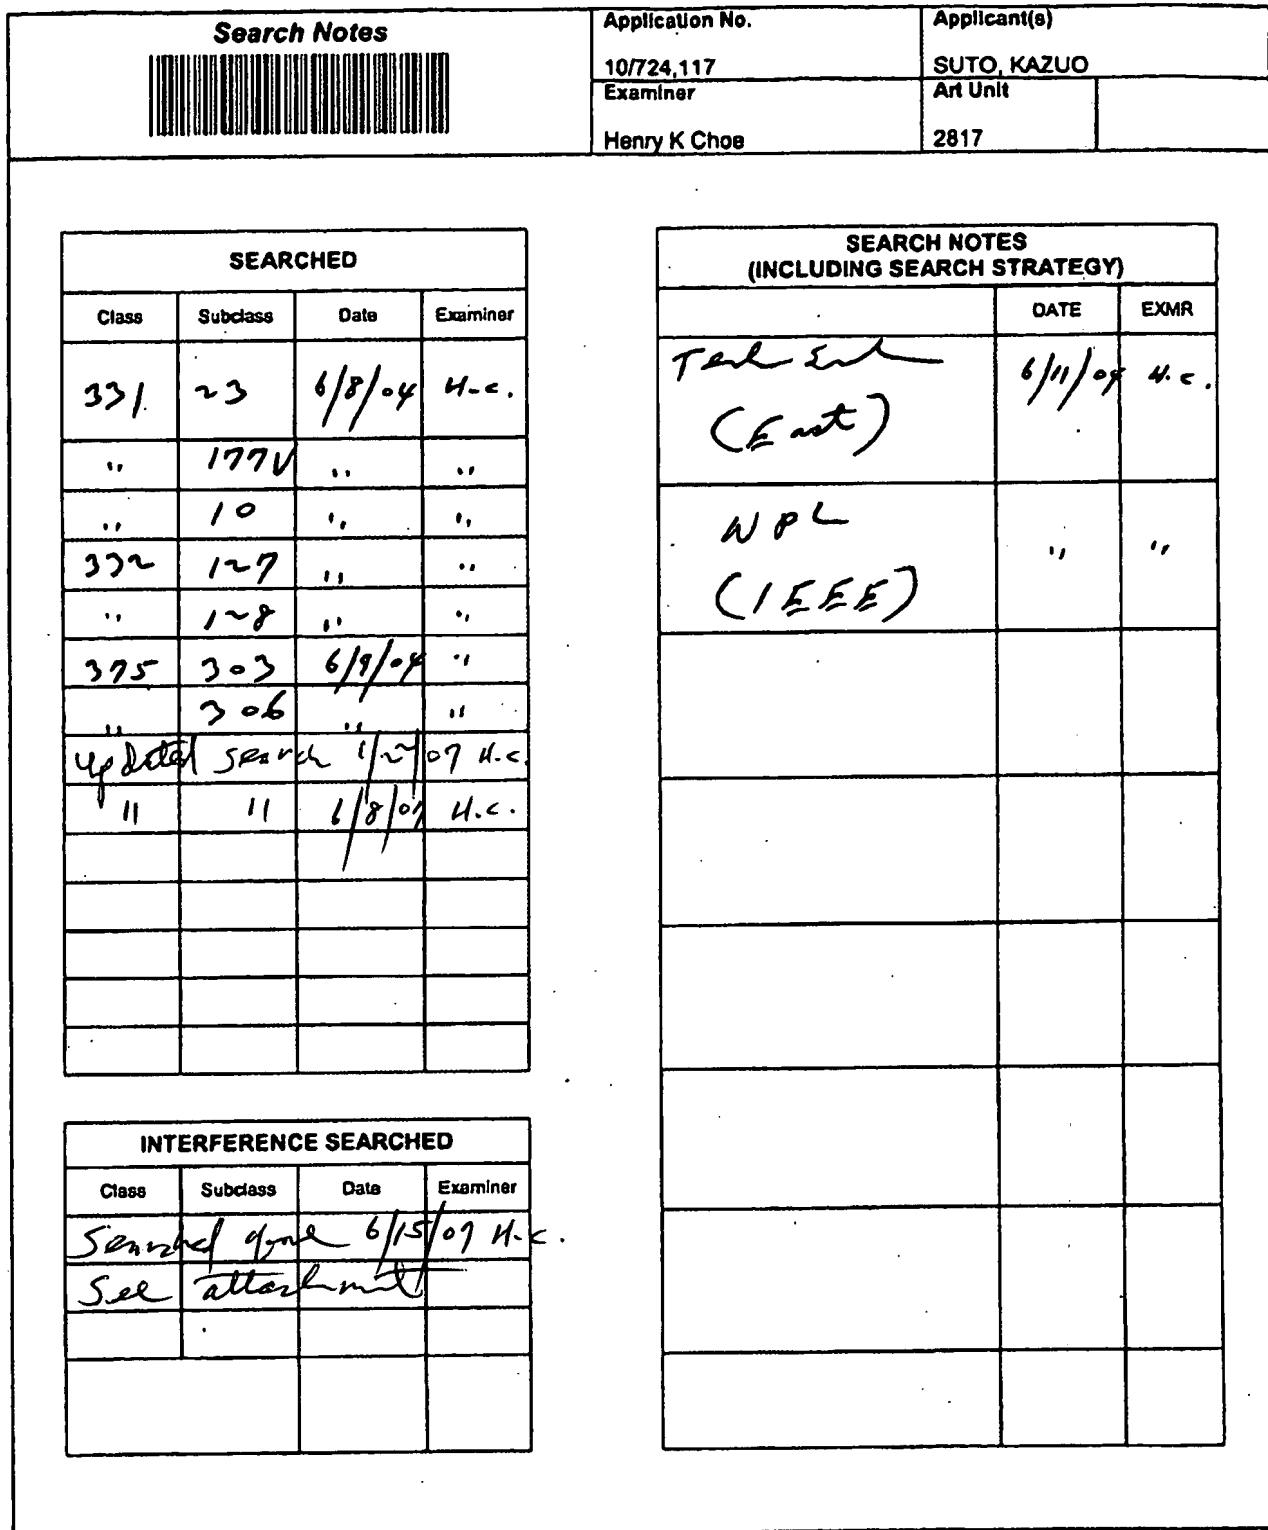 Search Notes
Application No.
10/724,117
Applicant(s)
SUTO, KAZUO
Examiner
Henry K Choe
Art Unit
2817
SEARCHED
Class Subclass Date Examiner
331 23 6/8/04 H.C.
" 177V " "
" 10 " "
332 127 " "
" 128 " "
375 303 6/9/04 "
" 306 " "
updated search 1/22/07 H.C.
" " 6/8/07 H.C.
INTERFERENCE SEARCHED
Class Subclass Date Examiner
Searched done 6/15/07 H.C.
See attachment
SEARCH NOTES
(INCLUDING SEARCH STRATEGY)
DATE EXMR
6/11/04 H.C.
(East)
NPL " "
(IEEE)